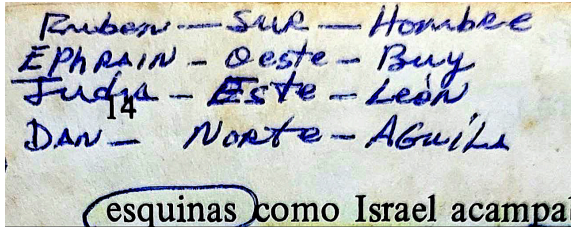 Ruben — Sur — Hombre
EPhRAIN - Oeste - Buy
Judá - Este - León
14
DAN - Norte - AGuiLA
esquinas como Israel acampa